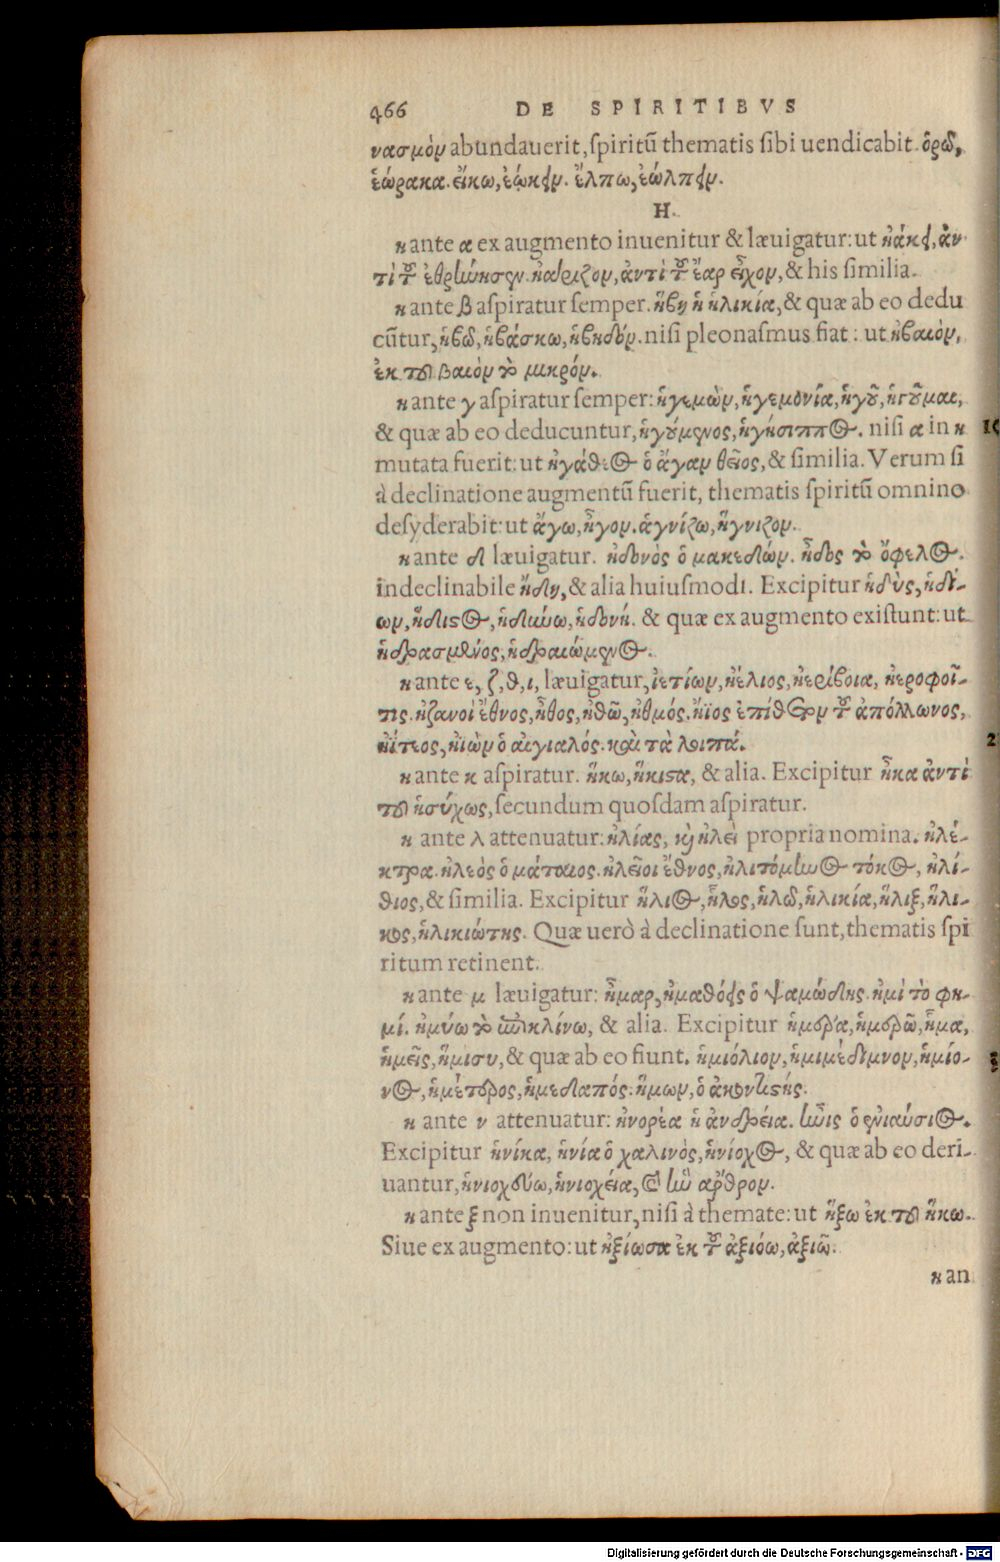 466 DE SPIRITIBVS
νασμὸν abundauerit, spiritū thematis sibi uendicabit. ὁρῶ,
ἑώρακα. εἴκω, ἐῴκειν. ἔλπω, ἐώλπειν.
H.
η ante α ex augmento inuenitur & læuigatur: ut
τὶ τοῦ ἔαρ εἶχον, & his similia.
η ante β aspiratur semper. ἥβη ἡ ἡλικία, & quæ ab eo dedu
cūtur, ἡβῶ, ἡβάσκω, ἡβηδόν. nisi pleonasmus fiat: ut ἠβαιὸν,
ἐκ τοῦ βαιὸν τὸ μικρόν.
η ante γ aspiratur semper: ἡγεμὼν, ἡγεμονία, ἡγοῦ, ἡγοῦμαι,
& quæ ab eo deducuntur, ἡγούμενος, ἡγήσιππος. nisi α in η
mutata fuerit: ut ἠγάθεος ὁ ἄγαν θεῖος, & similia. Verum si
à declinatione augmentū fuerit, thematis spiritū omnino
desyderabit: ut ἄγω, ἦγον. ἁγνίζω, ἥγνιζον.
η ante δ læuigatur. ἠδονὸς ὁ μακεδών. ἦδος τὸ ὄφελος.
indeclinabile ἤδη, & alia huiusmodi. Excipitur ἡδὺς, ἡδί-
ων, ἥδιστος, ἡδύνω, ἡδονή. & quæ ex augmento existunt: ut
ἡδρασμένος, ἡδραιώμενος.
η ante ε, ζ, θ, ι, læuigatur, ἠετίων, ἠέλιος, ἠερίβοια, ἠεροφοῖ-
τις. ἠζανοὶ ἔθνος, ἦθος, ἠθῶ, ἠθμός. ἤϊος ἐπίθετον τοῦ ἀπόλλωνος,
ἠΐτεος, ἠϊὼν ὁ αἰγιαλός. καὶ τὰ λοιπά.
η ante κ aspiratur. ἥκω, ἥκιστα, & alia. Excipitur ἦκα ἀντὶ
τοῦ ἡσύχως, secundum quosdam aspiratur.
η ante λ attenuatur: ἠλίας, καὶ ἠλεὶ propria nomina. ἠλέ-
κτρα. ἠλεὸς ὁ μάταιος. ἠλεῖοι ἔθνος, ἠλιτόμηνος τόκος, ἠλί-
θιος, & similia. Excipitur ἥλιος, ἧλος, ἡλῶ, ἡλικία, ἥλιξ, ἥλι-
κος, ἡλικιώτης. Quæ uerò à declinatione sunt, thematis spi
ritum retinent.
η ante μ læuigatur: ἦμαρ, ἠμαθόεις ὁ ψαμώδης. ἠμὶ τὸ φη-
μί. ἠμύω τὸ ἐπικλίνω, & alia. Excipitur ἡμέρα, ἡμερῶ, ἧμα,
ἡμεῖς, ἥμισυ, & quæ ab eo fiunt. ἡμιόλιον, ἡμιμέδιμνον, ἡμίο-
νος, ἡμέτερος, ἡμεδαπός. ἥμων, ὁ ἀκοντιστής.
η ante ν attenuatur: ἠνορέα ἡ ἀνδρέια. ἦνις ὁ ἐνιαύσιος.
Excipitur ἡνίκα, ἡνία ὁ χαλινὸς, ἡνίοχος, & quæ ab eo deri-
uantur, ἡνιοχεύω, ἡνιοχεία, & ἣν ἄρθρον.
η ante ξ non inuenitur, nisi à themate: ut ἥξω ἐκ τοῦ ἥκω.
Siue ex augmento: ut ἠξίωσα ἐκ τοῦ ἀξιόω, ἀξιῶ.
η an
Digitalisierung gefördert durch die Deutsche Forschungsgemeinschaft - DFG